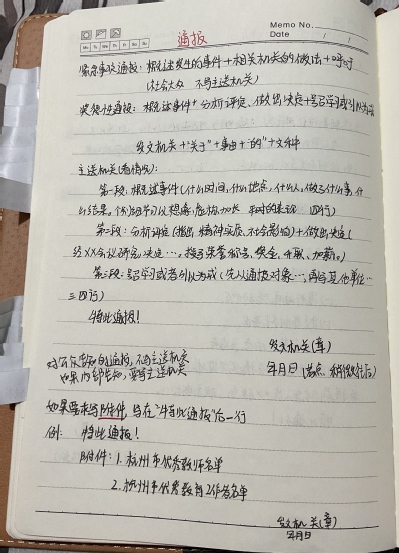 Memo No.
Date / /
Mo Tu We Th Fr Sa Su
通报
紧急事项通报：概述发生的事件+相关机关的做法+呼吁
（社会大众 不写主送机关）
奖惩性通报：概述事件+分析评定、做出决定+号召学习或引以为戒
发文机关+"关于"+事由+"的"+文种
主送机关（看情况）：
第一段：概述事件（什么时间，什么地点，什么人，做了什么事，什
么结果。 四行）
第二段：分析评定（ 精神实质、不合影响）+做出决定（
经XX会议研究决定…，授予荣誉称号、奖金、升职、加薪。）
第三段：号召学习或者引以为戒（先从通报对象…，再写其他单位…
三四行）
特此通报！
发文机关（章）
年月日
对公众告知的通报，不写主送机关
如果内部告知，要写主送机关
如果要写附件，写在"特此通报"后一行
例： 特此通报！
附件：1.杭州市优秀教师名单
2.杭州市优秀教育工作者名单
发文机关（章）
年月日